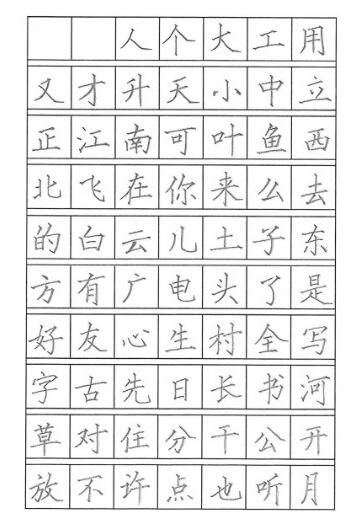 人个大工用
又才升天小中立
正江南可叶鱼西
北飞在你来么去
的白云儿土子东
方有广电头了是
好友心生村全写
字古先日长书河
草对住分干公开
放不许点也听月